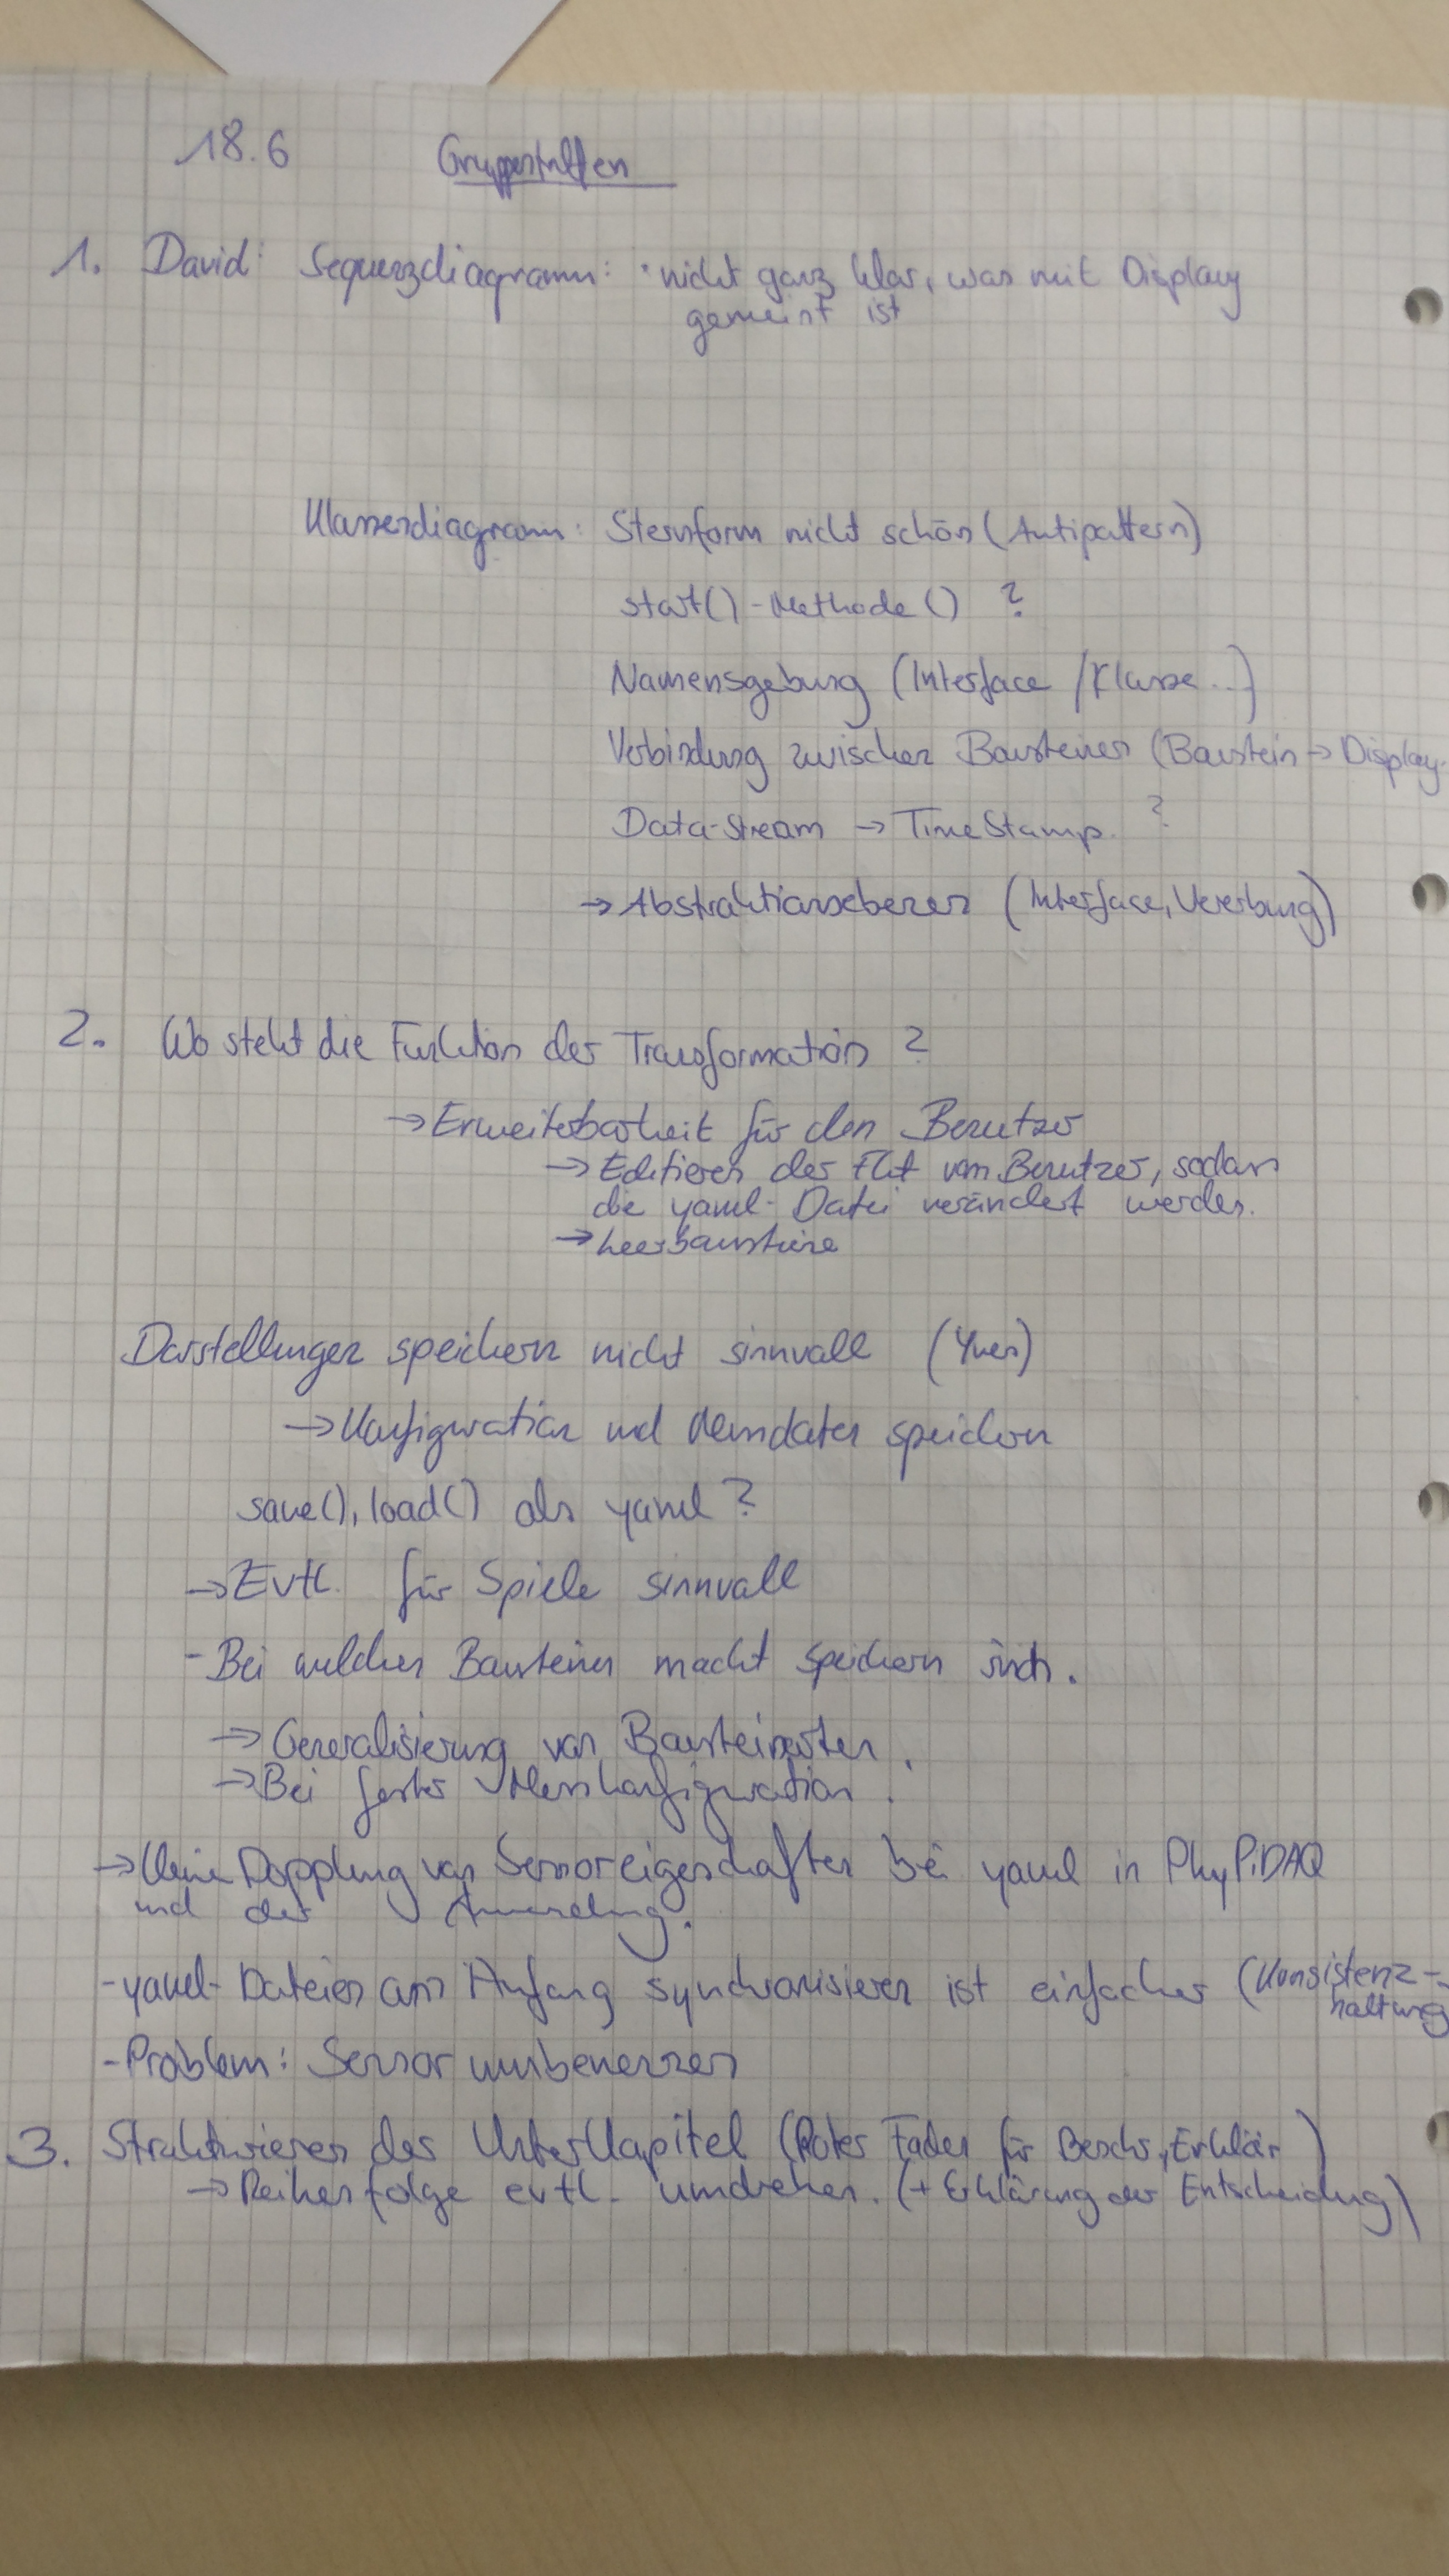 18.6 Gruppentreffen
1. David: Sequenzdiagramm: • nicht ganz klar, was mit Display
gemeint ist
Klassendiagramm: Sternform nicht schön (Antipattern)
start() - Methode () ?
Namensgebung (Interface / Klasse ...)
Verbindung zwischen Bausteinen (Baustein → Display
Data-Stream → TimeStamp ?
→ Abstraktionsebenen (Interface, Vererbung)
2. Wo steht die Funktion der Transformation ?
→ Erweiterbarkeit für den Benutzer
→ Editieren der vom Benutzer, sodass
die yaml-Datei verändert werden.
→ Leerbausteine
Darstellungen speichern nicht sinnvoll (Yves)
→ Konfiguration und Messdaten speichern
save(), load() als yaml ?
→ Evtl. für Spiele sinnvoll
- Bei welchen Bausteinen macht speichern
→ Generalisierung von Bausteinarten.
→ Bei fester Messkonfiguration.
→ Keine Dopplung von Sensoreigenschaften bei yaml in PhyPiDAQ
und der Anwendung.
- yaml-Dateien am Anfang synchronisieren ist einfacher (Konsistenz-
haltung
- Problem: Sensor umbenennen
3. Strukturieren der Unterkapitel (Roter Faden für Beschr., Erklär )
→ Reihenfolge evtl. umdrehen. (+ Erklärung der Entscheidung)